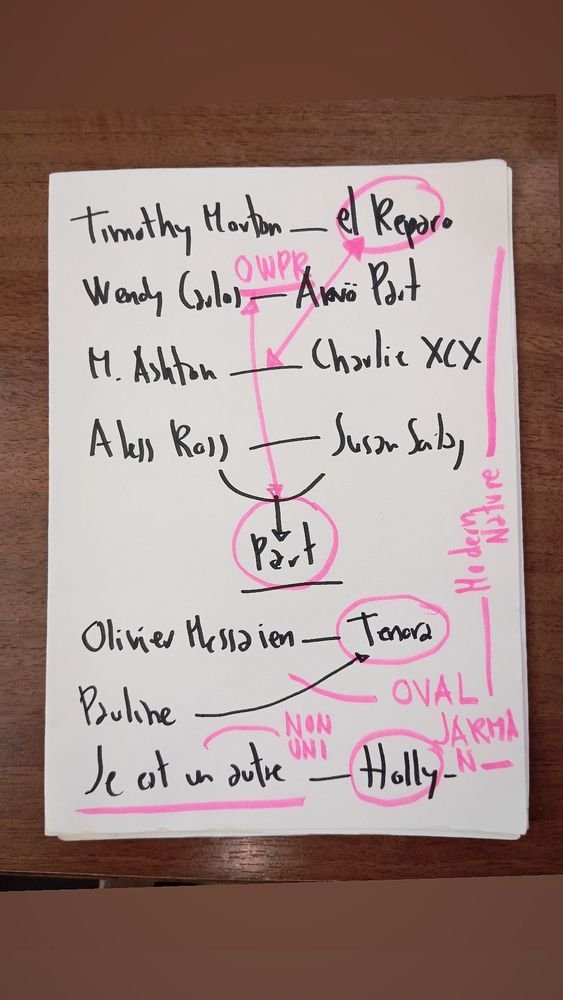 Timothy Morton — el Reparo
OWPR
Wendy Carlos — Arvö Part
M. Ashton — Charlie XCX
Aless Ross —  Susan
Part
Modern Nature
Olivier Messaien — Tenora
OVAL
Pauline
NON UNI
JARMAN
Je est un autre — Holly